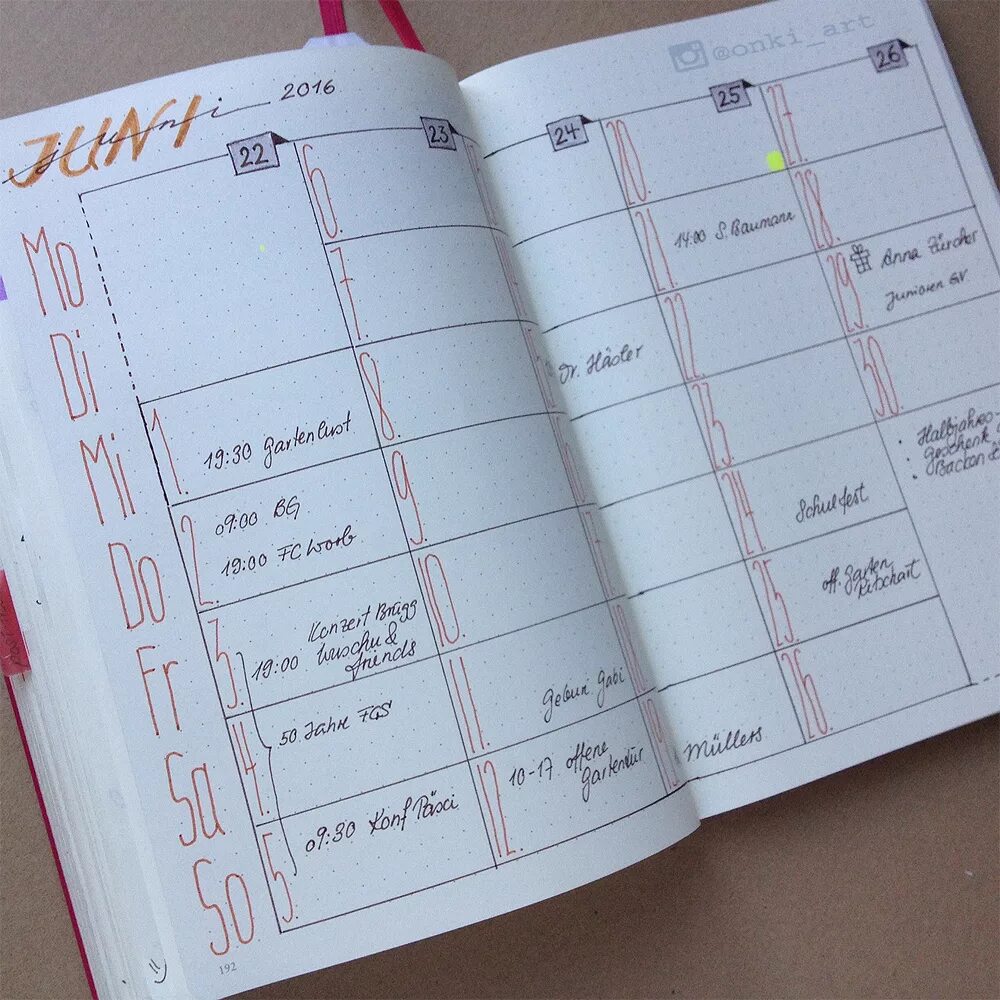 @onki_art
JUNI
juni 2016
22
23
24
25
26
Mo
Di
Mi
Do
Fr
Sa
So
1.
19:30 Gartenlust
2.
09:00 BG
19:00 FC Worb
3.
Konzert Brügg
19:00 Wuschu &
friends
4.
50. Jahre FGS
5.
09:30 Konf Päsci
6.
7.
8.
9.
10.
11.
Geburi Gabi
12.
10-17. offene
Gartentür
Dr. Häsler
19
Müllers
20.
21.
14:00 S. Baumann
22.
23.
24.
Schulfest
25.
off. Garten
Ritschart
26.
27.
28.
29.
Anna Zürcher
Junioren GV.
30.
• Halbjahres
• Geschenk
• Backen
192
11